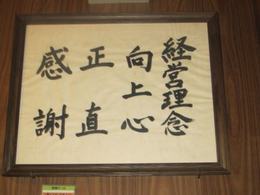 経営理念
向上心
正直
感謝